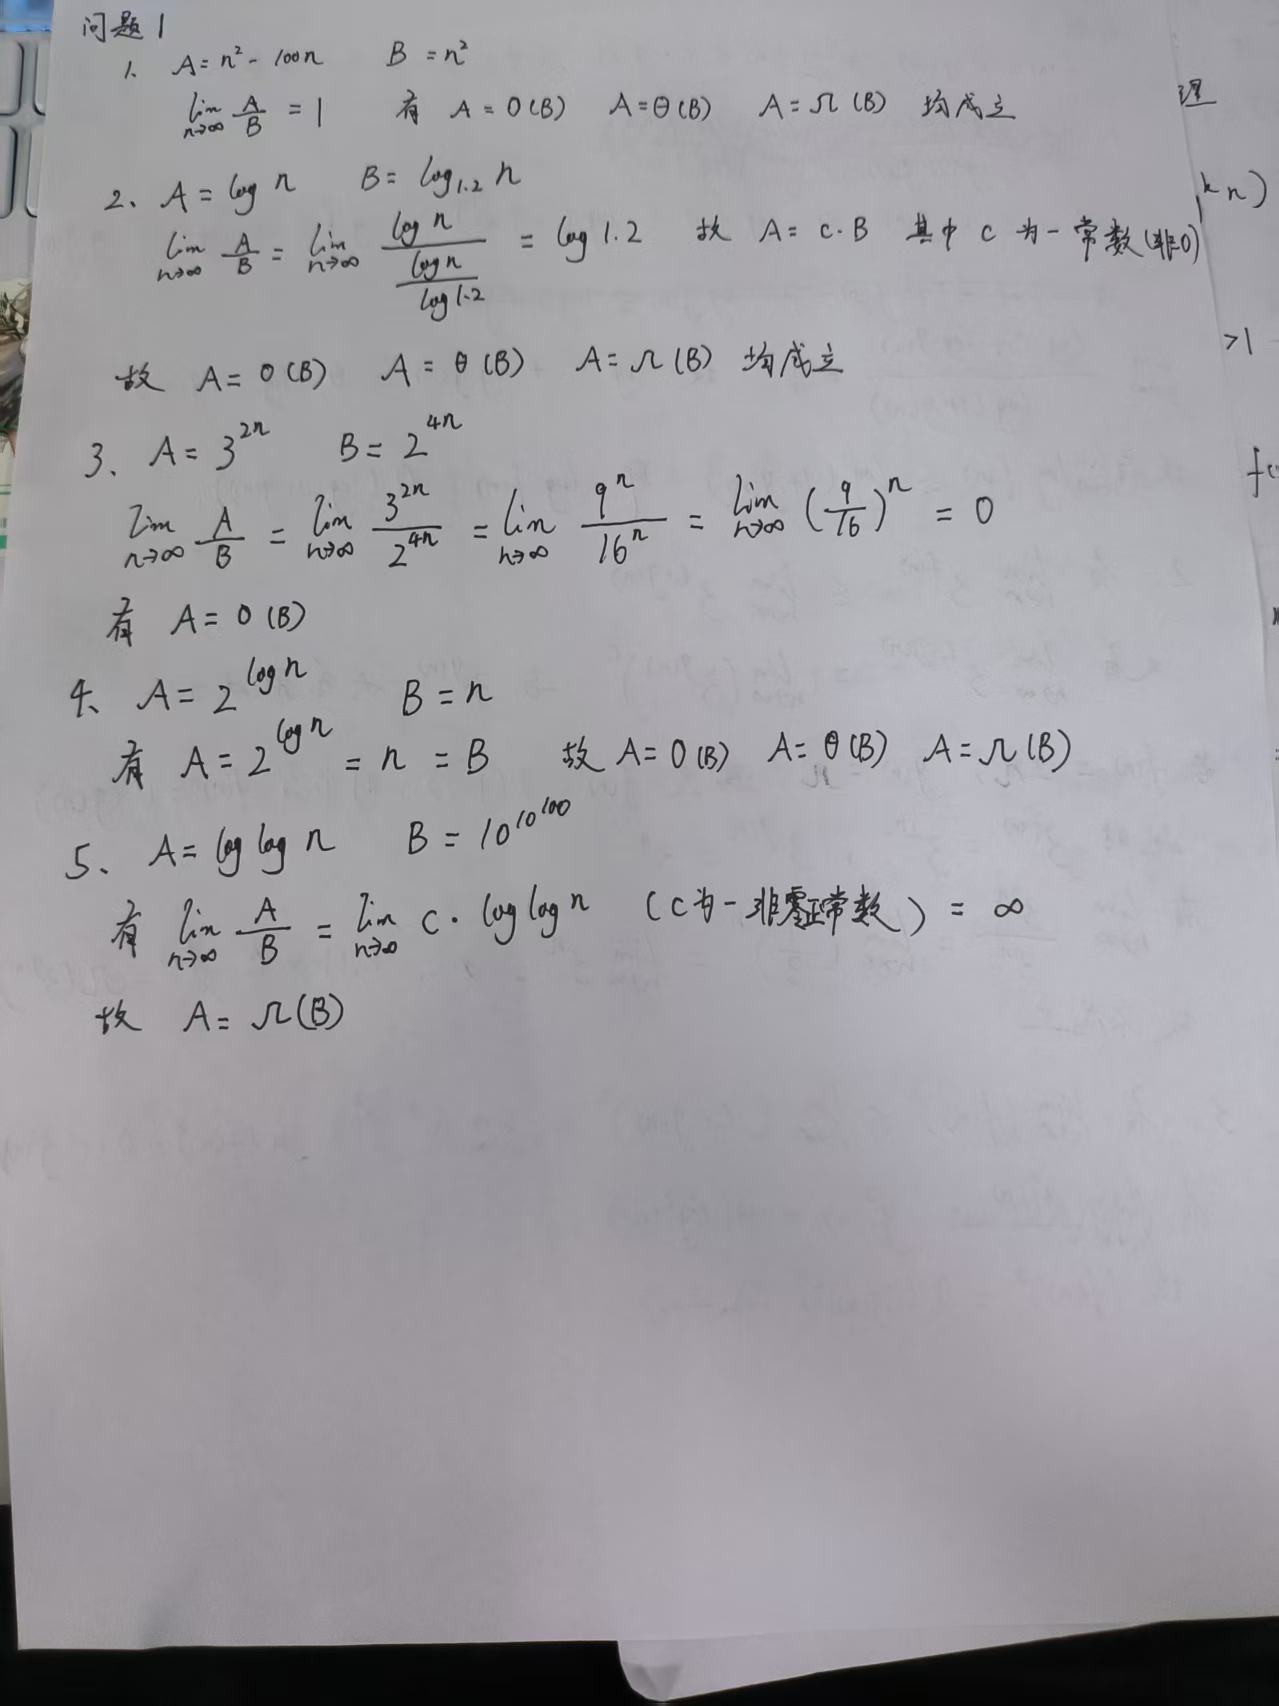 问题1
1、 A=n²-100n B=n²
lim n→∞ A/B = 1 有 A=O(B) A=θ(B) A=Ω(B) 均成立
2、 A=log n B=log₁.₂ n
lim n→∞ A/B = lim n→∞ (log n)/((log n)/(log 1.2)) = log 1.2 故 A=c·B 其中 c 为一常数(非0)
故 A=O(B) A=θ(B) A=Ω(B) 均成立
3、 A=3^{2n} B=2^{4n}
lim n→∞ A/B = lim n→∞ 3^{2n}/2^{4n} = lim n→∞ 9^n/16^n = lim n→∞ (9/16)^n = 0
有 A=O(B)
4、 A=2^{log n} B=n
有 A=2^{log n} = n = B 故 A=O(B) A=θ(B) A=Ω(B)
5、 A=log log n B=10^{10^{100}}
有 lim n→∞ A/B = lim n→∞ c·log log n (c为一非零正常数) = ∞
故 A=Ω(B)
理
n)
>1